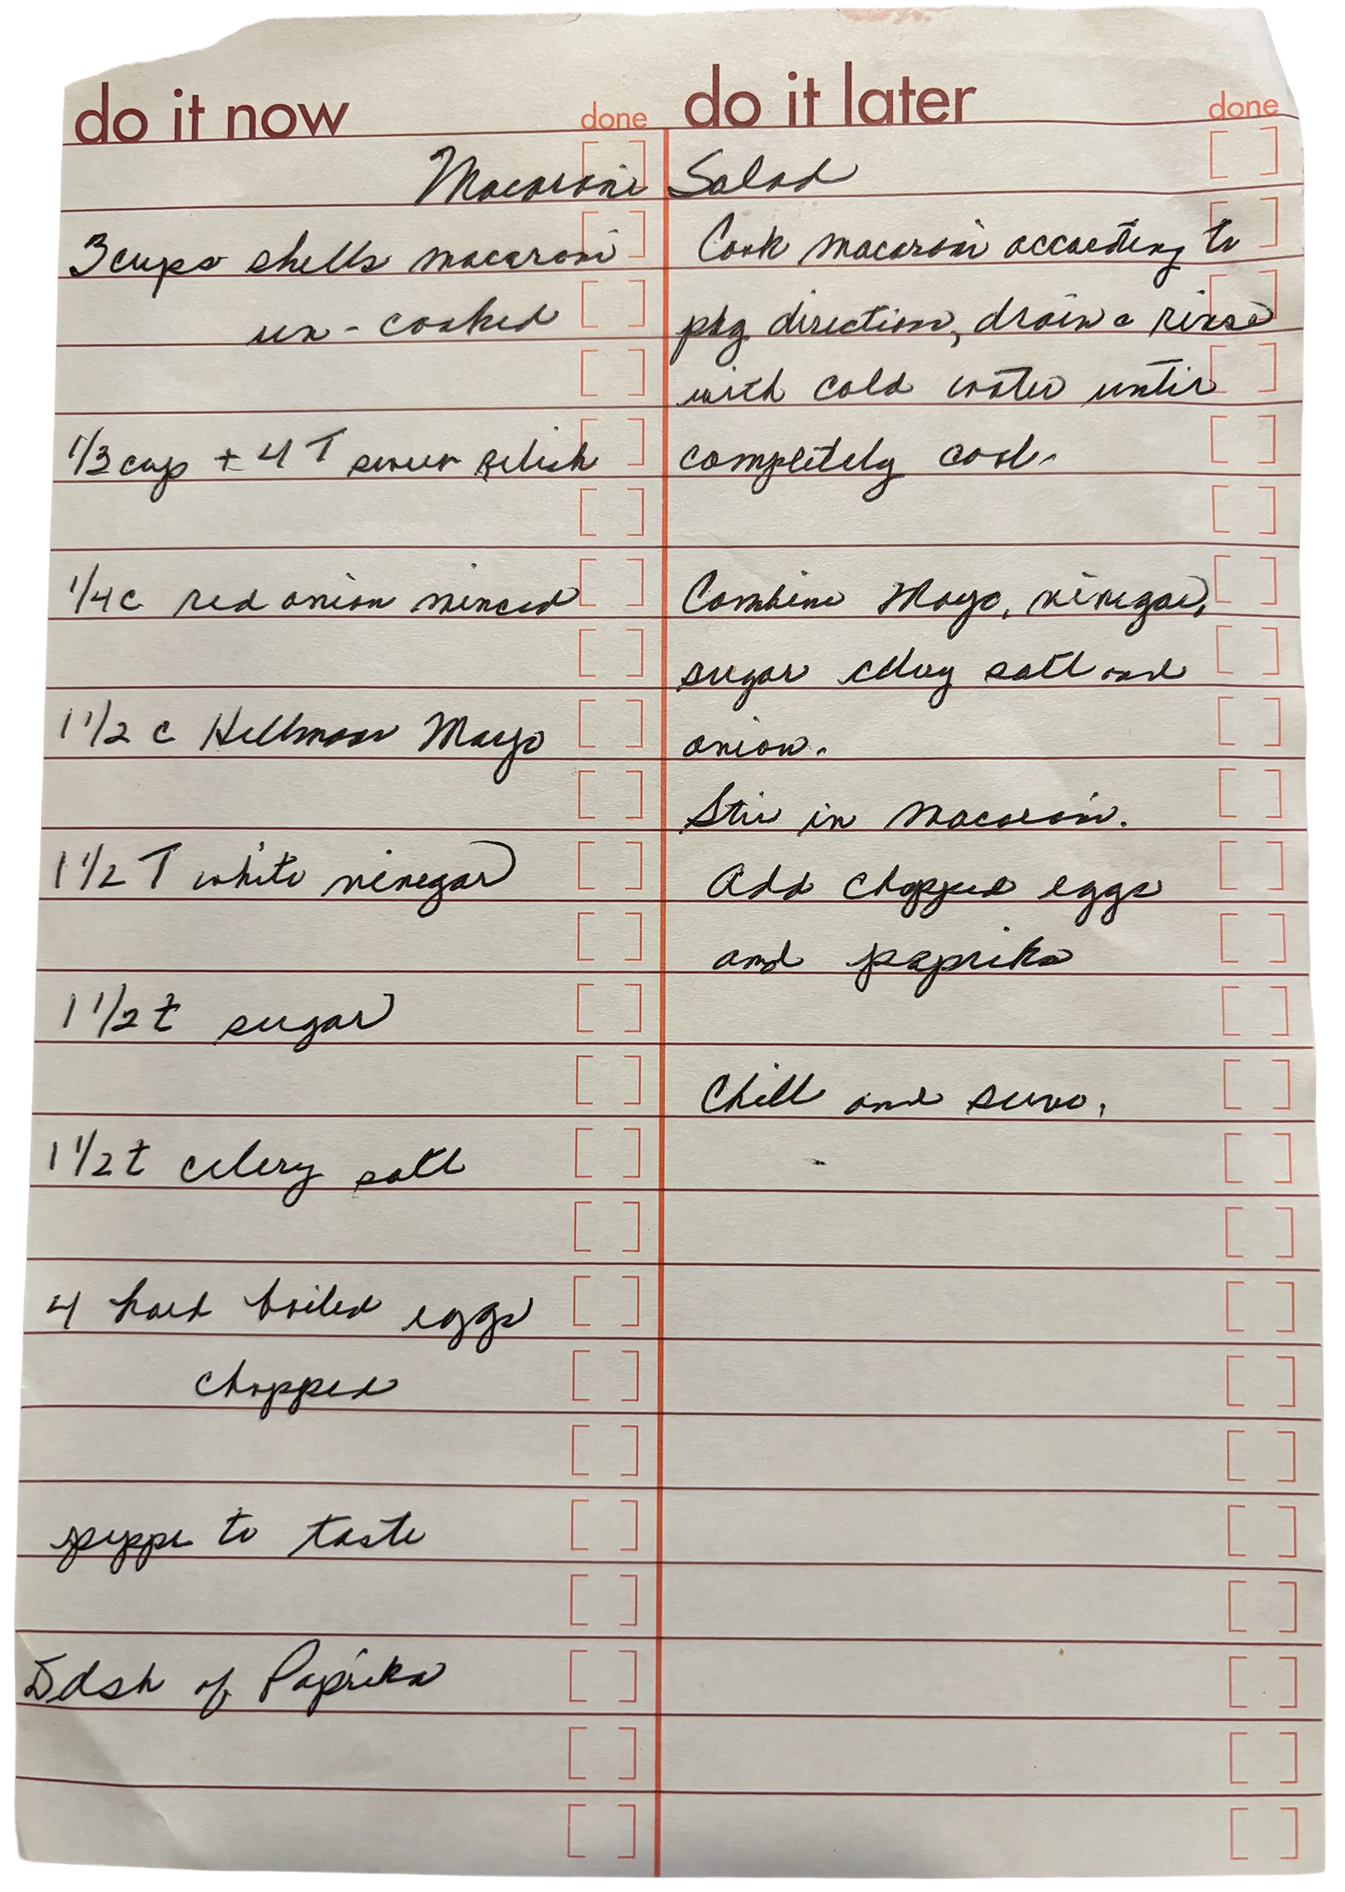 do it now done
do it later done
Macaroni Salad
3 cups shells macaroni
un-cooked
1/3 cup + 4 T relish
1/4 c red onion minced
1 1/2 c Hellman Mayo
1 1/2 T white vinegar
1 1/2 t sugar
1 1/2 t celery salt
4 hard boiled eggs
chopped
to taste
Ddsh of Paprika
Cook macaroni according to
pkg direction, drain & rinse
with cold water until
completely cool.
Combine Mayo, vinegar,
sugar celery salt and
onion.
Stir in macaroni.
Add chopped eggs
and paprika
Chill and serve.